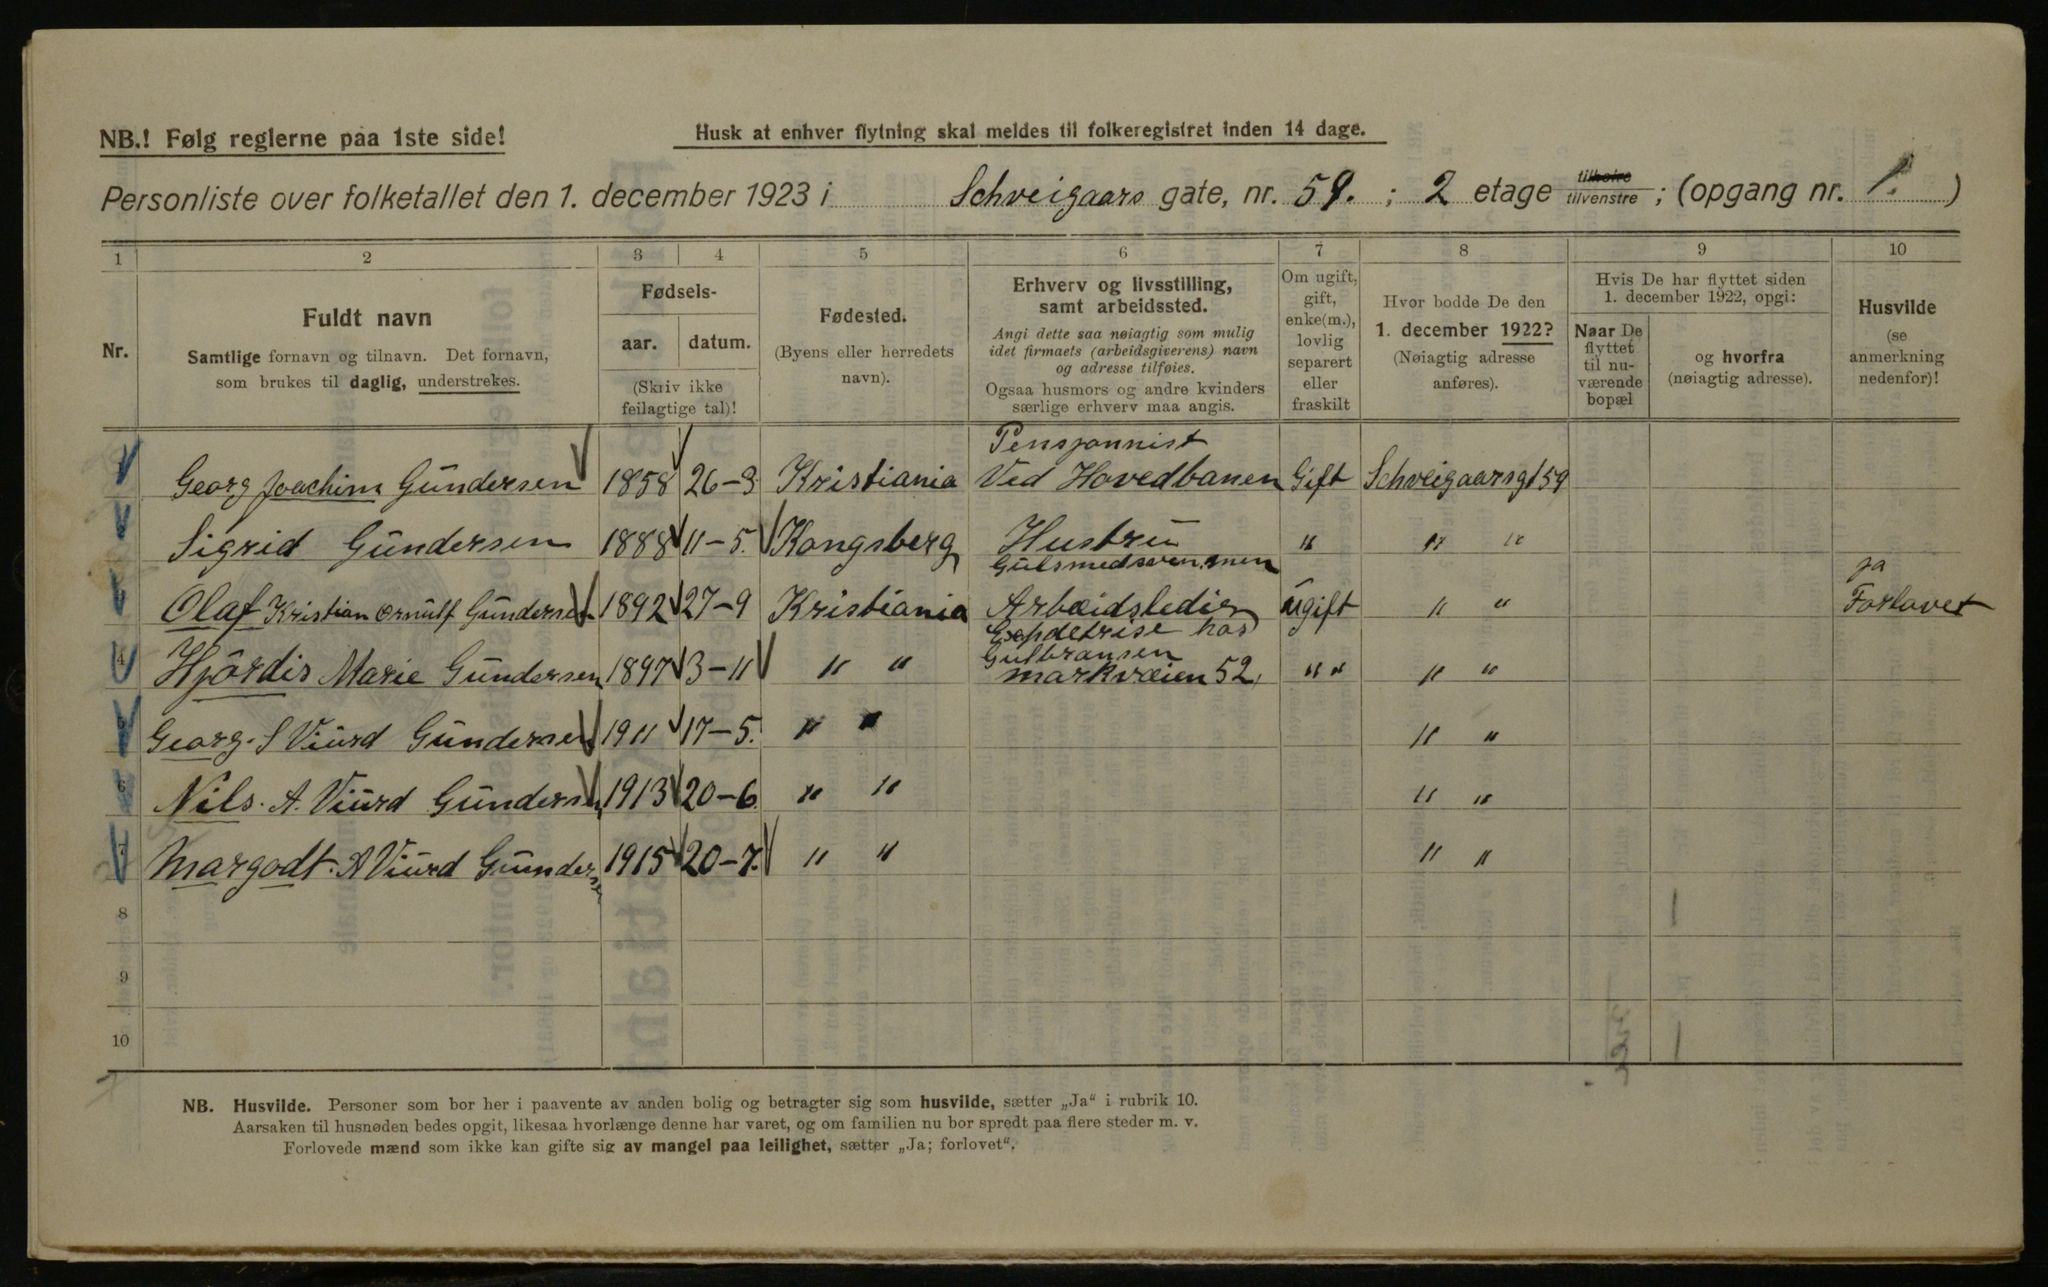 NB.! Følg reglerne paa 1ste side!
Husk at enhver flytning skal meldes til folkeregistret inden 14 dage.
Personliste over folketallet den 1. december 1923 i Schveigaars gate, nr. 59. ; 2 etage tilhøire tilvenstre ; (opgang nr. 1. )
1 2 3 4 5 6 7 8 9 10
Nr.
Fuldt navn
Samtlige fornavn og tilnavn. Det fornavn,
som brukes til daglig, understrekes.
Fødsels-
aar. datum.
(Skriv ikke
feilagtige tal)!
Fødested.
(Byens eller herredets
navn).
Erhverv og livsstilling,
samt arbeidssted.
Angi dette saa nøiagtig som mulig
idet firmaets (arbeidsgiverens) navn
og adresse tilføies.
Ogsaa husmors og andre kvinders
særlige erhverv maa angis.
Om ugift,
gift,
enke(m.),
lovlig
separert
eller
fraskilt
Hvor bodde De den
1. december 1922?
(Nøiagtig adresse
anføres).
Hvis De har flyttet siden
1. december 1922, opgi:
Naar De
flyttet
til nu-
værende
bopæl
og hvorfra
(nøiagtig adresse).
Husvilde
(se
anmerkning
nedenfor)!
Pensjonnist
Georg Joachim Gundersen 1858 26-3 Kristiania Ved Hovedbanen Gift Schveigaarsgt 59
Sigrid Gundersen 1888 11-5. Kongsberg Hustru " " "
Gulsmedsven, men ja
Olaf Kristian Ornulf Gundersen 1892 27-9 Kristiania Arbeidsledig ugift " " Forlovet
Expdetrise hos
Gulbransen
4 Hjördis Marie Gundersen 1897 3-11 " " markvæien 52, " " " "
5 Georg. S Viurd Gundersen 1911 17-5. " " " "
6 Nils. A. Viurd Gundersen 1913 20-6. " " " "
7 Margodt. A Viurd Gundersen 1915 20-7. " " " "
8
9
10
NB. Husvilde. Personer som bor her i paavente av anden bolig og betragter sig som husvilde, sætter „Ja“ i rubrik 10.
Aarsaken til husnøden bedes opgit, likesaa hvorlænge denne har varet, og om familien nu bor spredt paa flere steder m. v.
Forlovede mænd som ikke kan gifte sig av mangel paa leilighet, sætter „Ja; forlovet“.